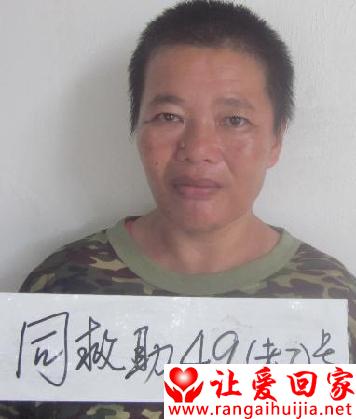 同救助49
让爱回家
www.rangaihuijia.net